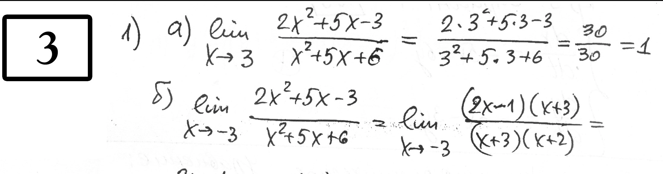 3
1) а) lim x→3 (2x²+5x-3)/(x²+5x+6) = (2·3²+5·3-3)/(3²+5·3+6) = 30/30 = 1
б) lim x→-3 (2x²+5x-3)/(x²+5x+6) = lim x→-3 ((2x-1)(x+3))/((x+3)(x+2)) =